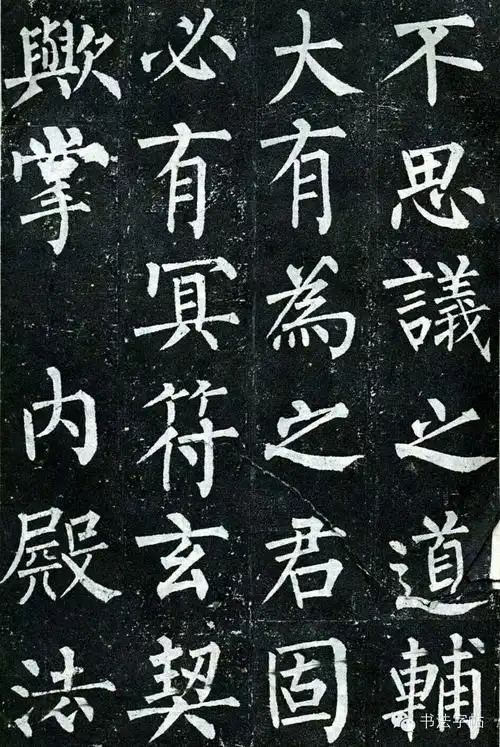 不思議之道輔
大有為之君固
必有冥符玄契
歟掌內殿法
书法字临